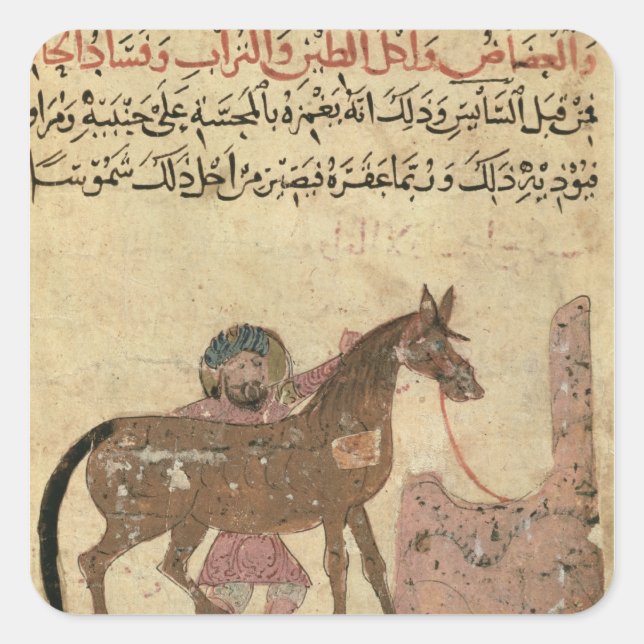 والعضاض واكل الطين والتراب وفساد الحا
فمن قبل السايس وذلك انه يغمزه بالمجسة على جنبيه ومراو
فيوذيه ذلك وربما عقره فيصير من اجل ذلك شموسا